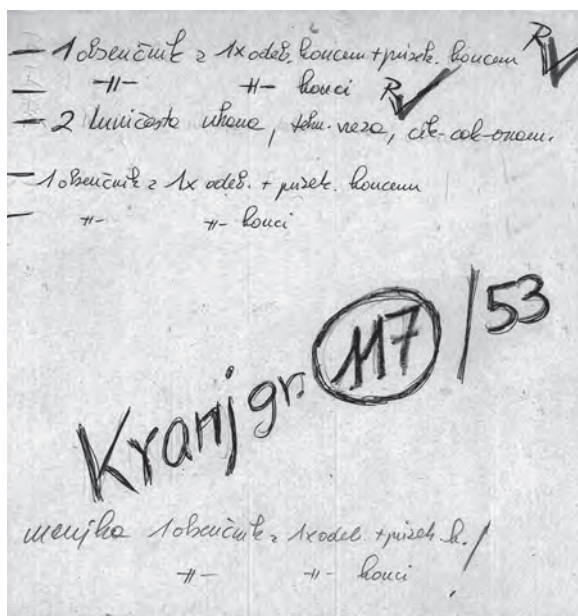 – 1 obsenčnik z 1x odeb. koncem + prisek. koncem R✓
– -||- -||- konci R✓
– 2 luničasta uhana, tehn. veza, cik-cak-onam.
– 1 obsenčnik z 1x odeb. + prisek. koncem
– -||- -||- konci
Kranj gr. 117 / 53
manjka 1 obsenčnik z 1x odeb. + prisek. k. /
-||- -||- konci